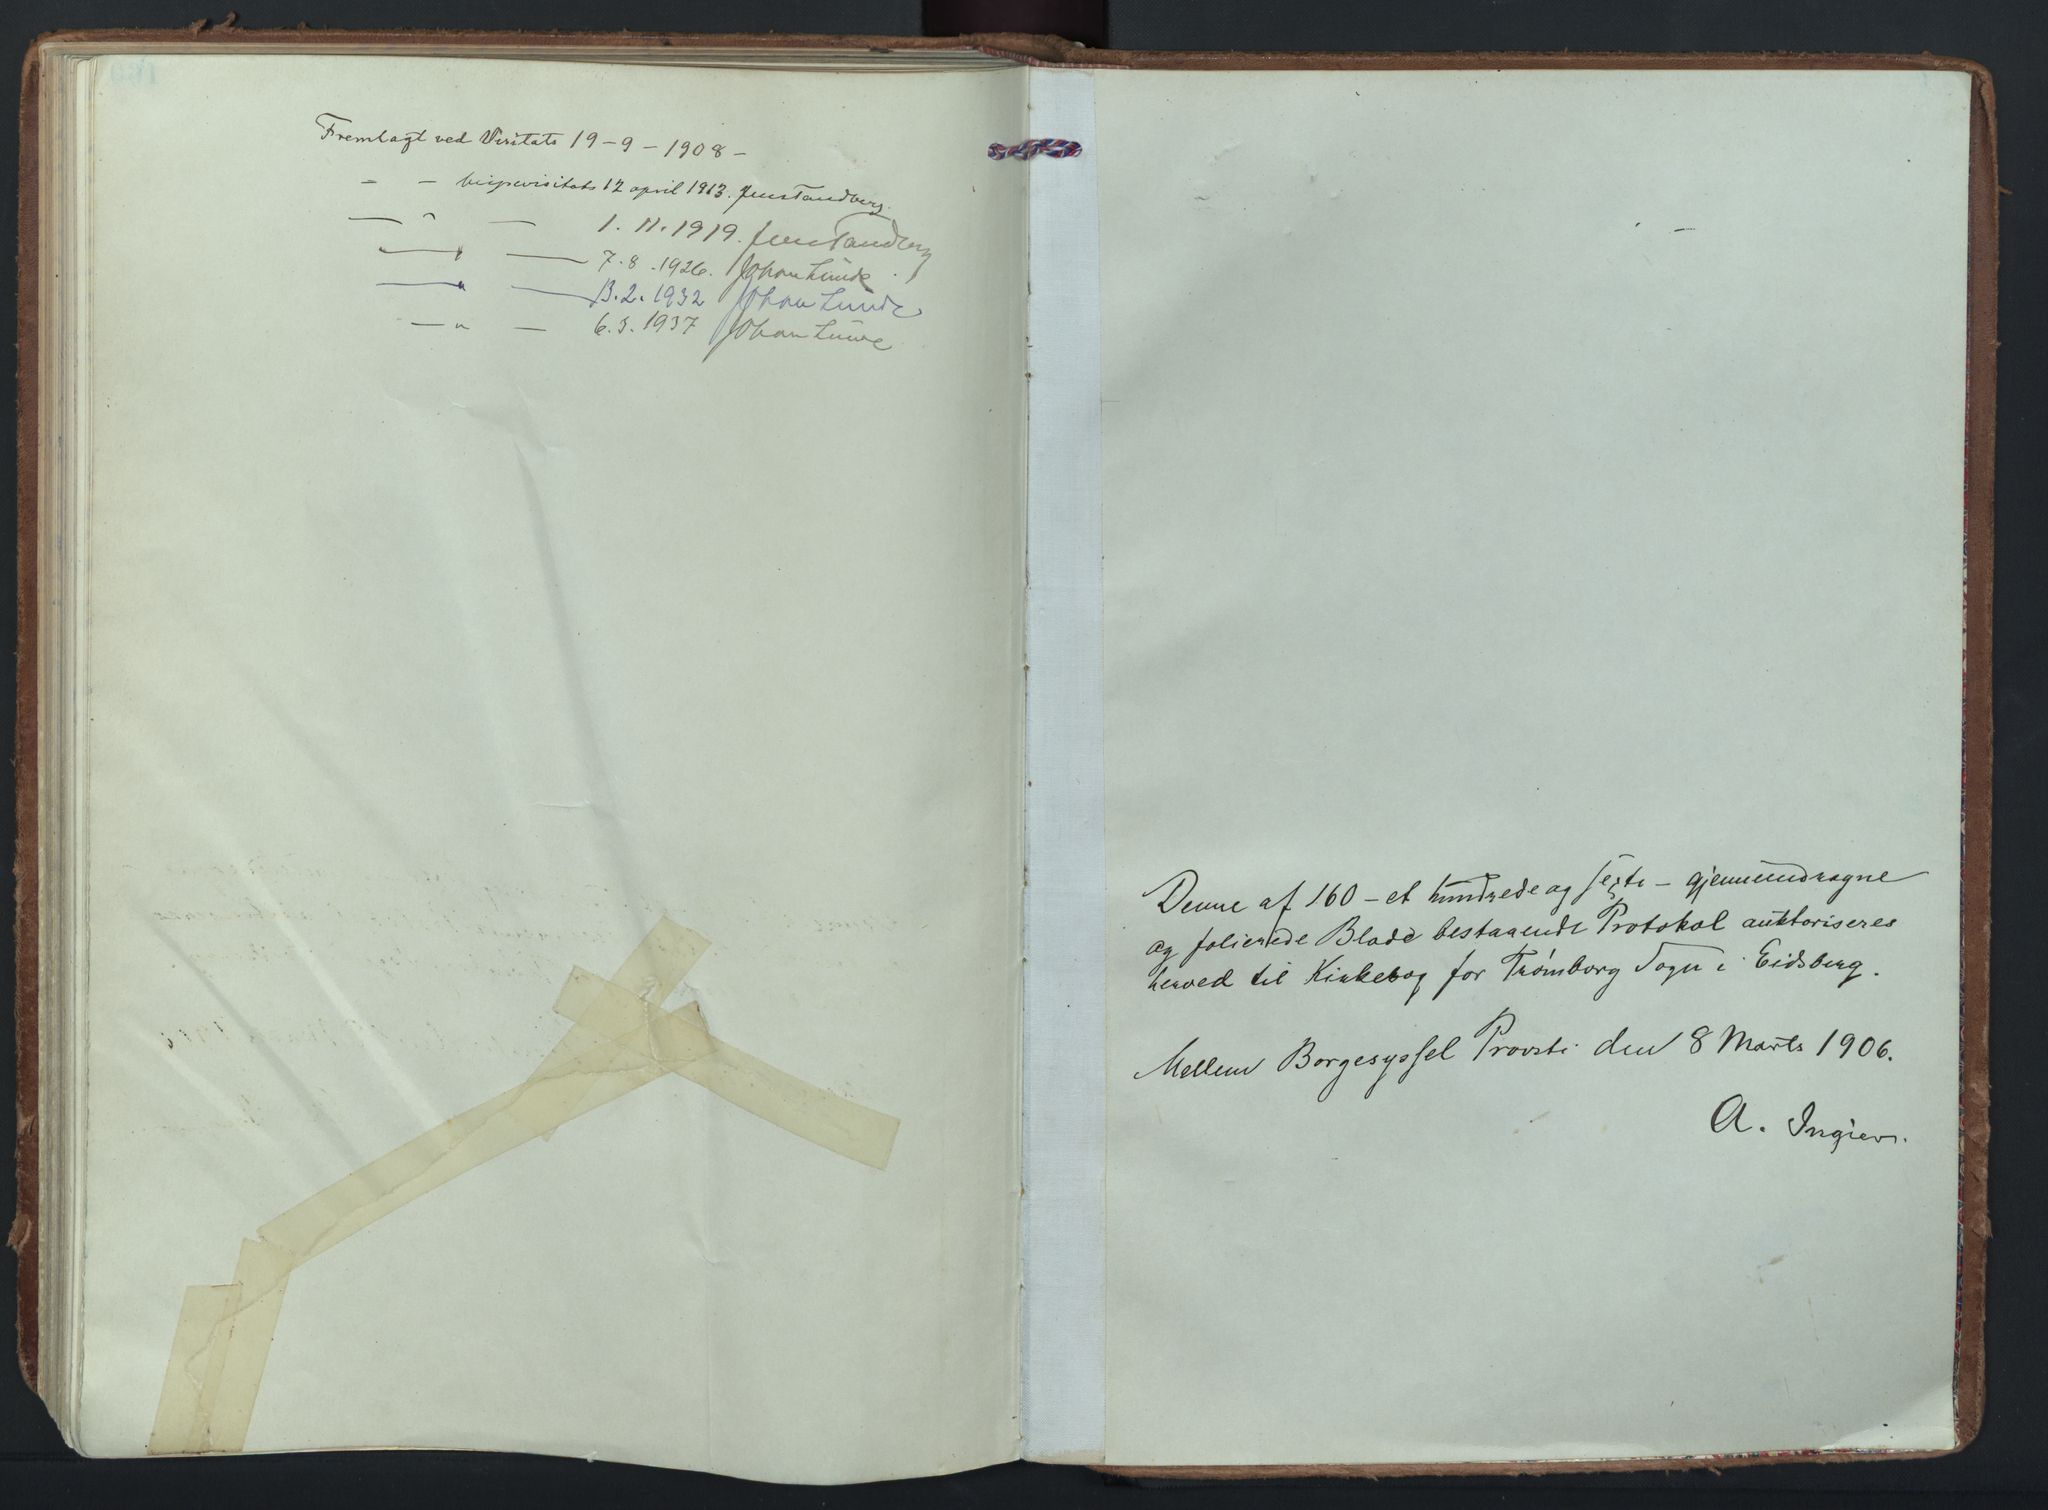 Fremlagt ved Visitats 19-9-1908-
" - bispevisitats 12 april 1913. Jens Tandberg.
— " — 1. 11. 1919. Jens Tandberg
— " — 7. 8. 1926. Johan Lunde.
— " — 13. 2. 1932 Johan Lunde
— " — 6. 3. 1937 Johan Lunde
Denne af 160 - et hundrede og sexti - gjennemdragne
og folierede Blade bestaaende Protokol auktoriseres
herved til Kirkebog for Trømborg Sogn i Eidsberg.
Mellem Borgesyssel Provsti den 8 Marts 1906.
A. Ingier.